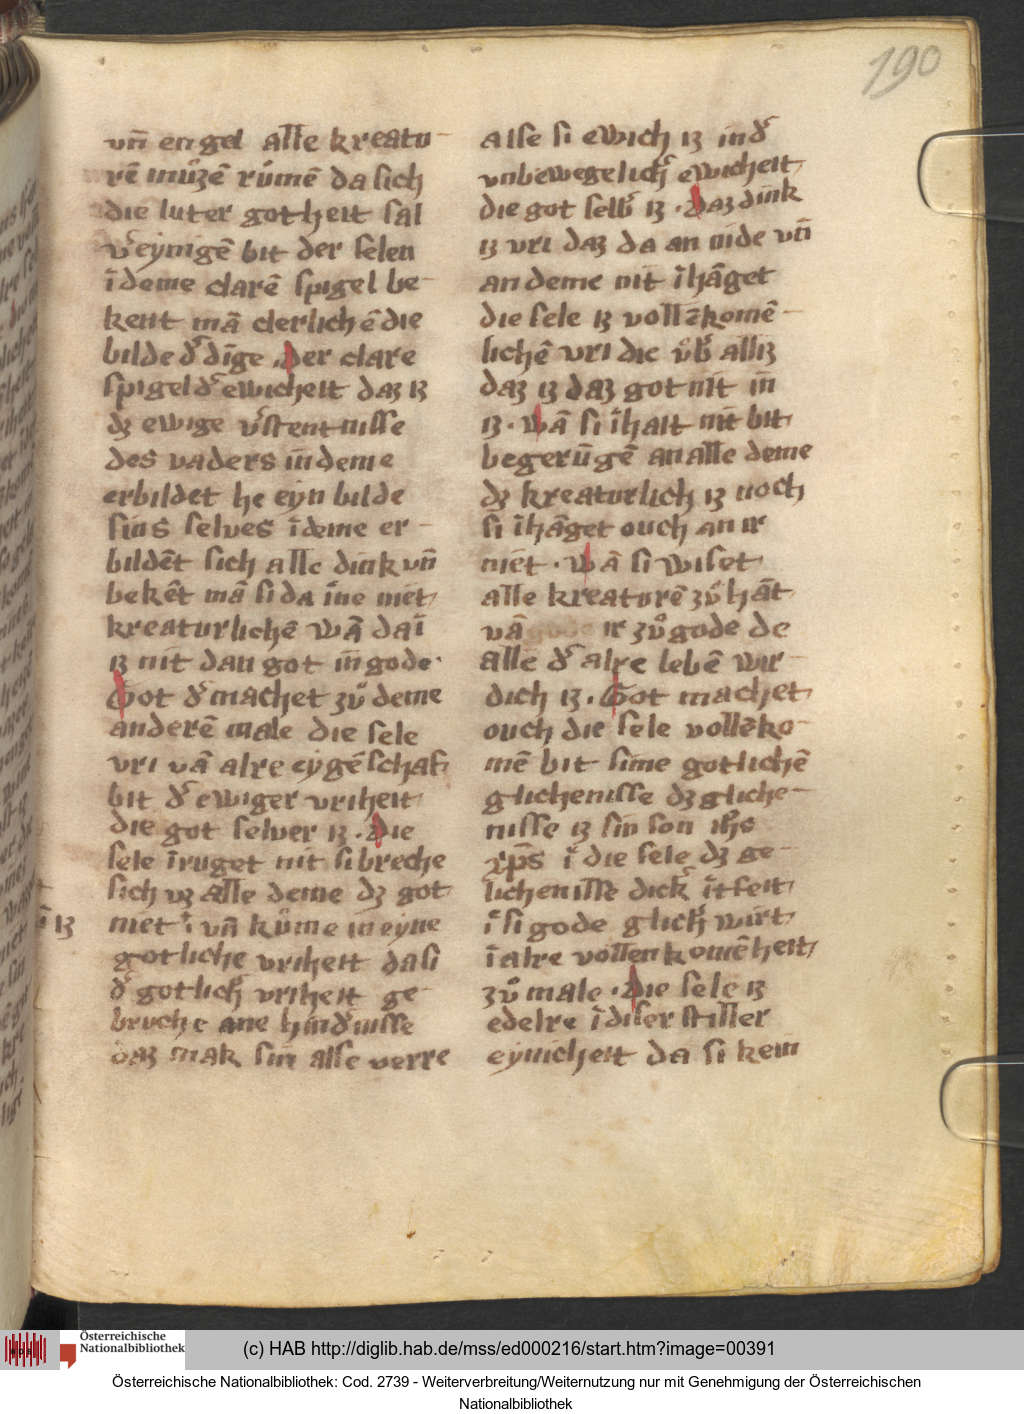 190
vn̄ engel alle kreatu-
rē mūzē rūmē da sich
die luter gotheit sal
v'eynigē bit der selen
ī deme clarē spigel be-
kent mā clerlichē die
bilde d' dīge . Der clare
spigel d' ewicheit daz iz
dz ewige v'stentnisse
des vaders in deme
erbildet he eyn bilde
sins selves ī deme er-
bildēt sich alle dink vn̄
bekēt mā si da īne niet
kreaturlichē wā da ī
iz nit dan got in gode.
Got d' machet zů deme
anderē male die sele
vri vā alre eygēschaft
bit d' ewiger vriheit
die got selver iz . Die
sele īruget nit si breche
sich vz alle deme dz got
niet ī iz vn̄ kůme in eyne
gotliche vriheit da si
d' gotlich' vriheit ge-
bruche ane hind'nisse
daz mak sin alse verre
alse si ewich iz in d'
vnbewegelich' ewicheit
die got selb' iz . Daz dink
iz vri daz da an nide vn̄
an deme nit īhāget
die sele iz vollēkomē-
lichē vri die ůb' alliz
daz iz daz got nit in
iz . Wā si īhait nit bit
begerūgē an alle deme
dz kreaturlich iz noch
si īhāget ouch an ir
niet . Wā si wiset
alle kreaturē zů hāt
vā gode ir zů gode de
alle d' alre lebē wir-
dich iz . Got machet
ouch die sele vollēko-
mē bit sime gotlichē
glichenisse dz gliche-
nisse iz sin son ih̄s
xp̄s ī die sele dz ge-
lichenisse dick' īt feit
ī si gode glich' wirt
ī alre vollenkomēheit
zů male . Die sele iz
edelre ī diser stiller
eynicheit da si kein
(c) HAB http://diglib.hab.de/mss/ed000216/start.htm?image=00391
Österreichische
Nationalbibliothek
Österreichische Nationalbibliothek: Cod. 2739 - Weiterverbreitung/Weiternutzung nur mit Genehmigung der Österreichischen
Nationalbibliothek